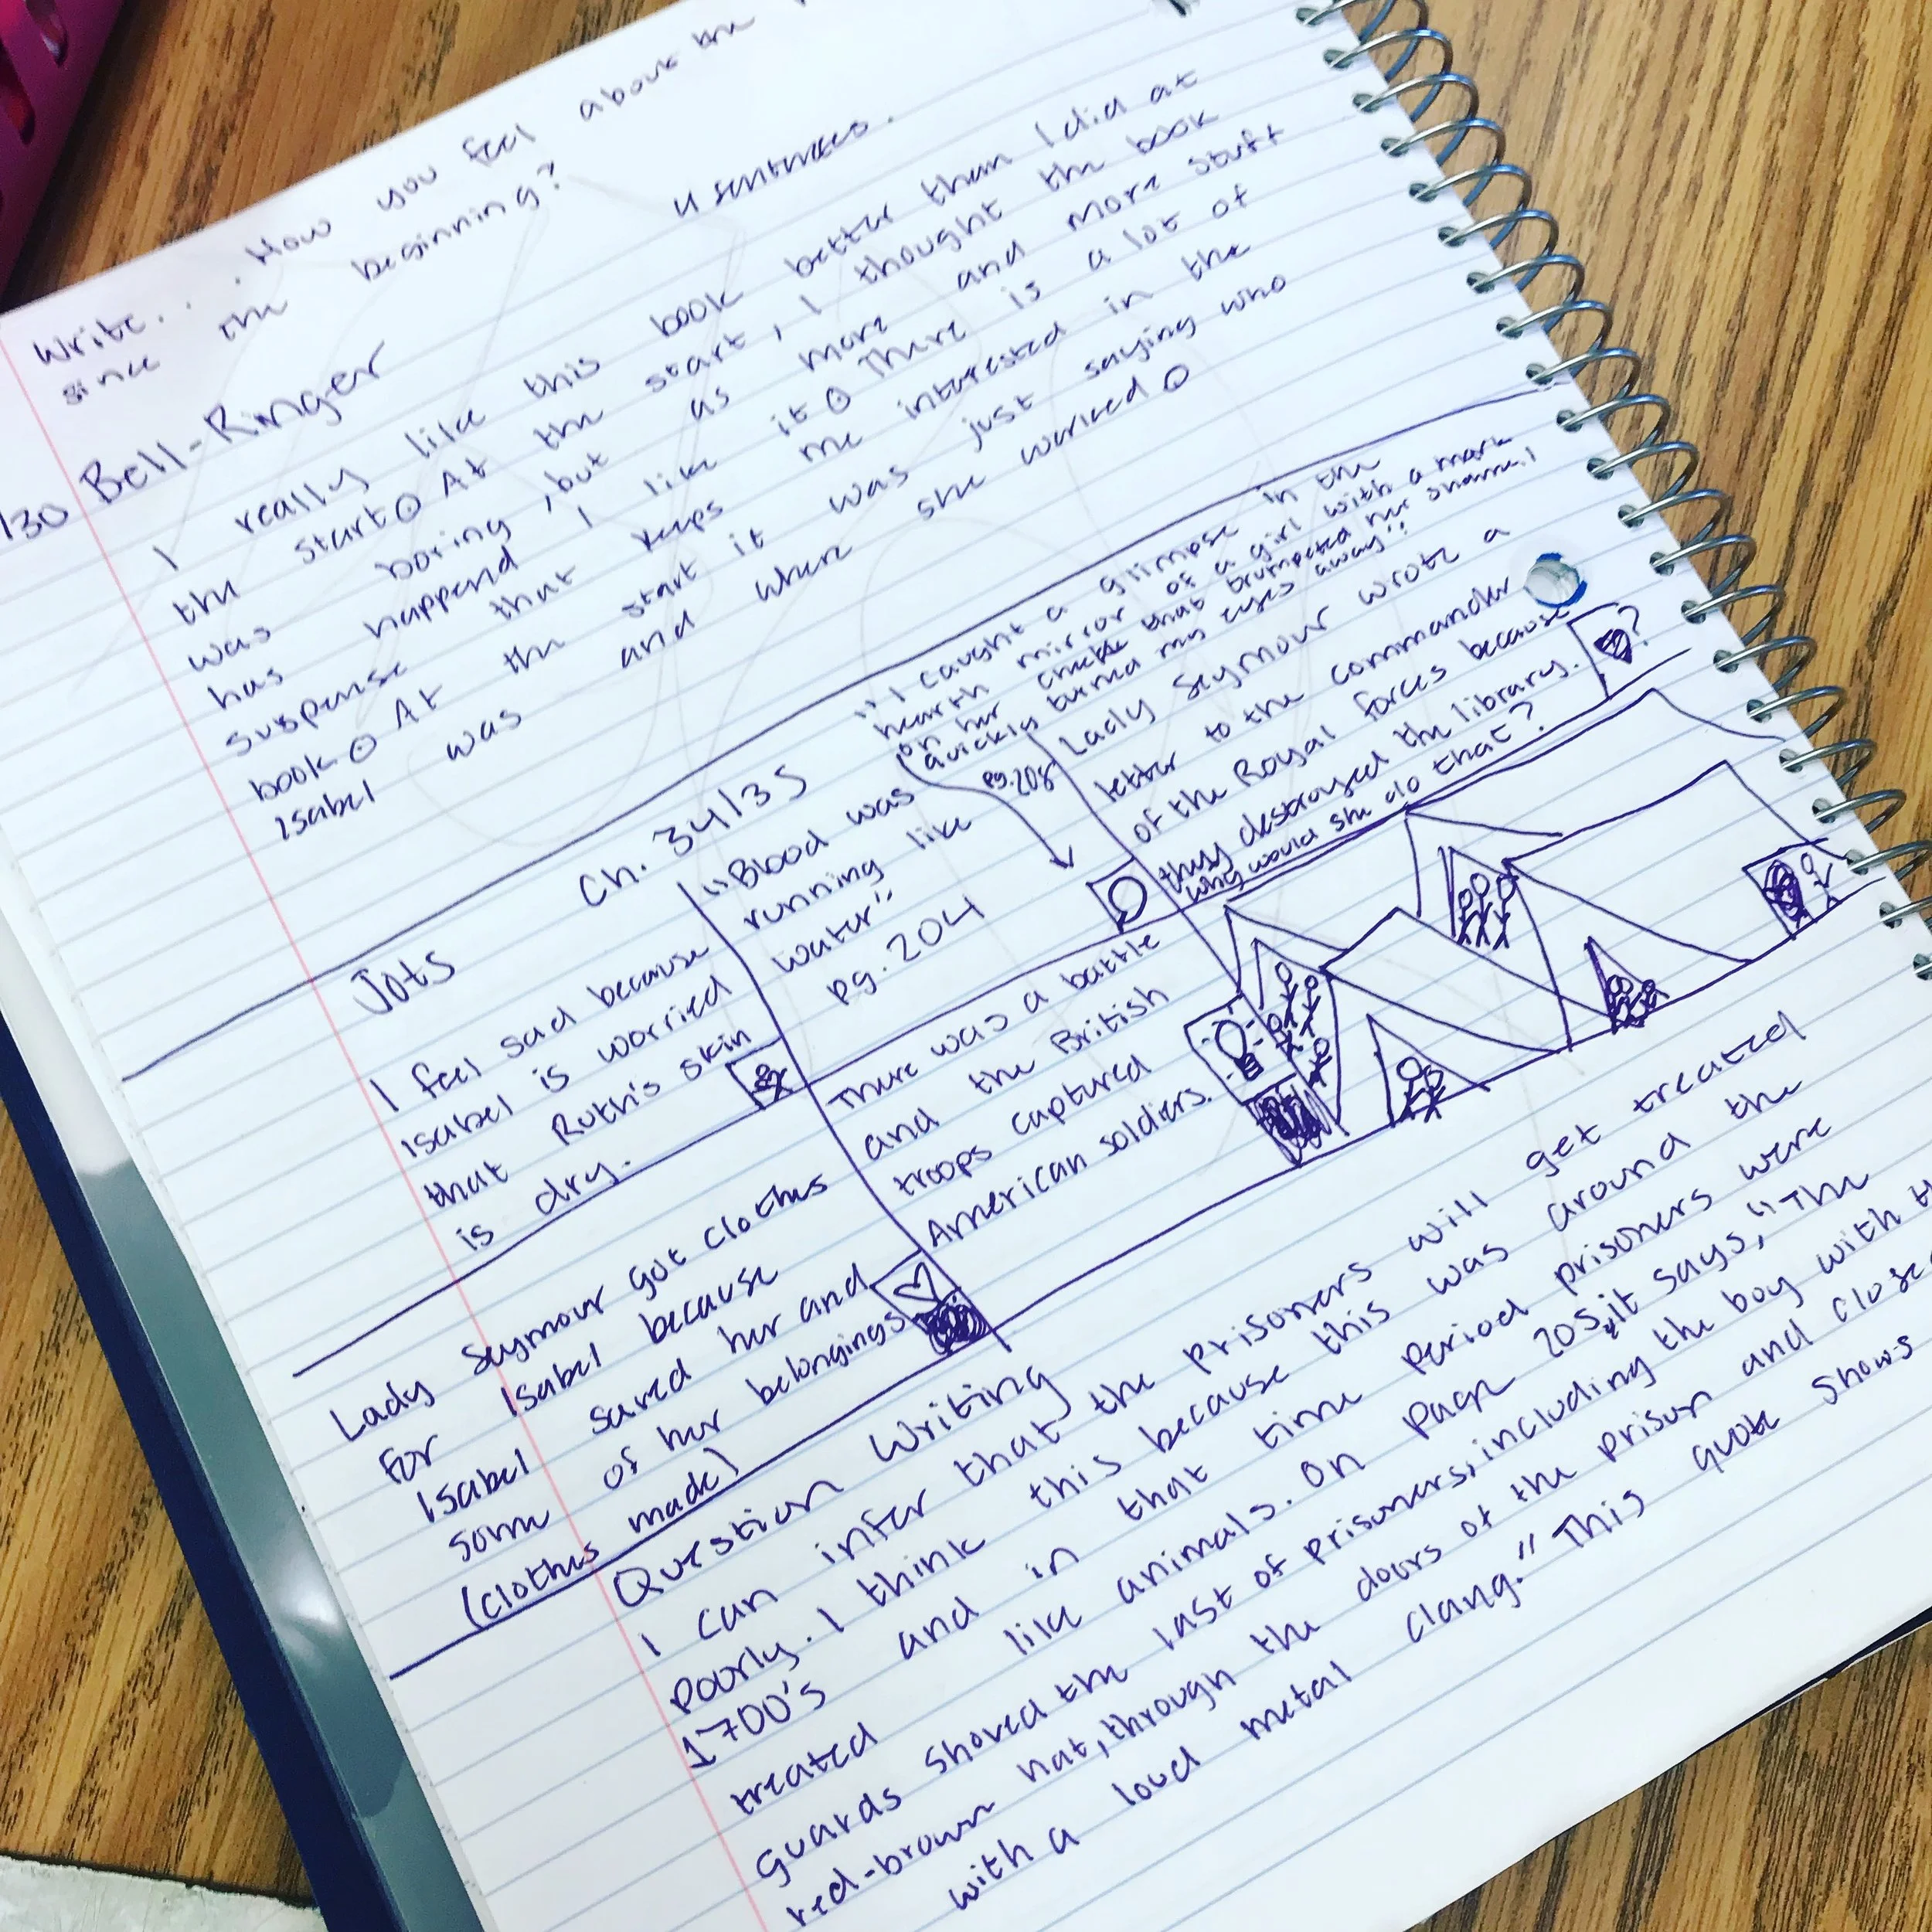 Write... How you feel about the
since the beginning?
4 sentences.
/30 Bell-Ringer
I really like this book better than I did at
the start. At the start, I thought the book
was boring, but as more and more stuff
has happend I like it. There is a lot of
suspense that keeps me interested in the
book. At the start it was just saying who
Isabel was and where she worked.
Jots Ch. 34/35
I feel sad because
Isabel is worried
that Ruth's skin
is dry.
"Blood was
running like
water"
pg. 204
"I caught a glimpse in the
hearth mirror of a girl with a mark
on her cheek that trumpeted her shame. I
quickly turned my eyes away".
pg. 208
Lady Seymour wrote a
letter to the commander
of the Royal forces because
they destroyed the library.
Why would she do that?
?
Lady Seymour got clothes
for Isabel because
Isabel saved her and
some of her belongings.
(clothes made)
There was a battle
and the British
troops captured
American soldiers.
Question Writing
I can infer that the prisoners will get treated
poorly. I think this because this was around the
1700's and in that time period prisoners were
treated like animals. On page 205, it says, "The
guards shoved the last of prisoners, including the boy with
red-brown hat, through the doors of the prison and close
with a loud metal clang." This quote shows